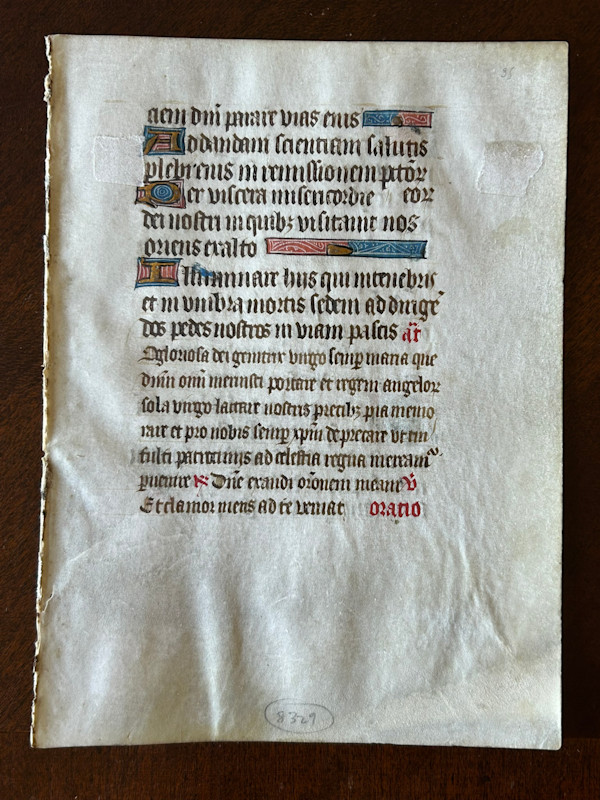 35
ciem dnī parare vias eius
Ad dandam scientiam salutis
plebi eius in remissionem pctōr
Per viscera misericordie eor
dei nostri in quibꝫ visitavit nos
oriens exalto
Illuminare hijs qui in tenebris
et in umbra mortis sedent ad dirigē
dos pedes nostros in viam pacis añ
O gloriosa dei genitrix virgo semꝑ maria que
dnm̄ om̄ meruisti portare et regem angelor
sola virgo lactare nostris precibꝫ pia memo
rare et pro nobis semꝑ xpm̄ deprecare ut tui
fulti patrocinijs ad celestia regna meream
ꝑvenire Dn̄e exaudi orōnem meam ℣
Et clamor meus ad te veniat oratio
8329